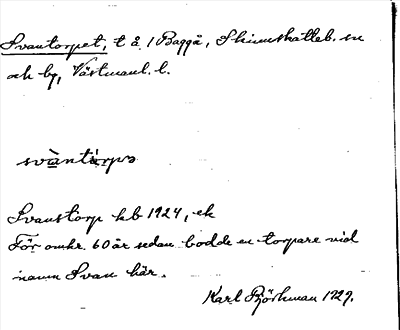 Svantorpet, t å 1 Baggå, Skinnskatteb. sn
och bg, Västmanl. l.
svàntórps
Svanstorp hb 1924, ek
För omkr. 60 år sedan bodde en torpare vid
namn Svan här.
Karl Björkman 1929.